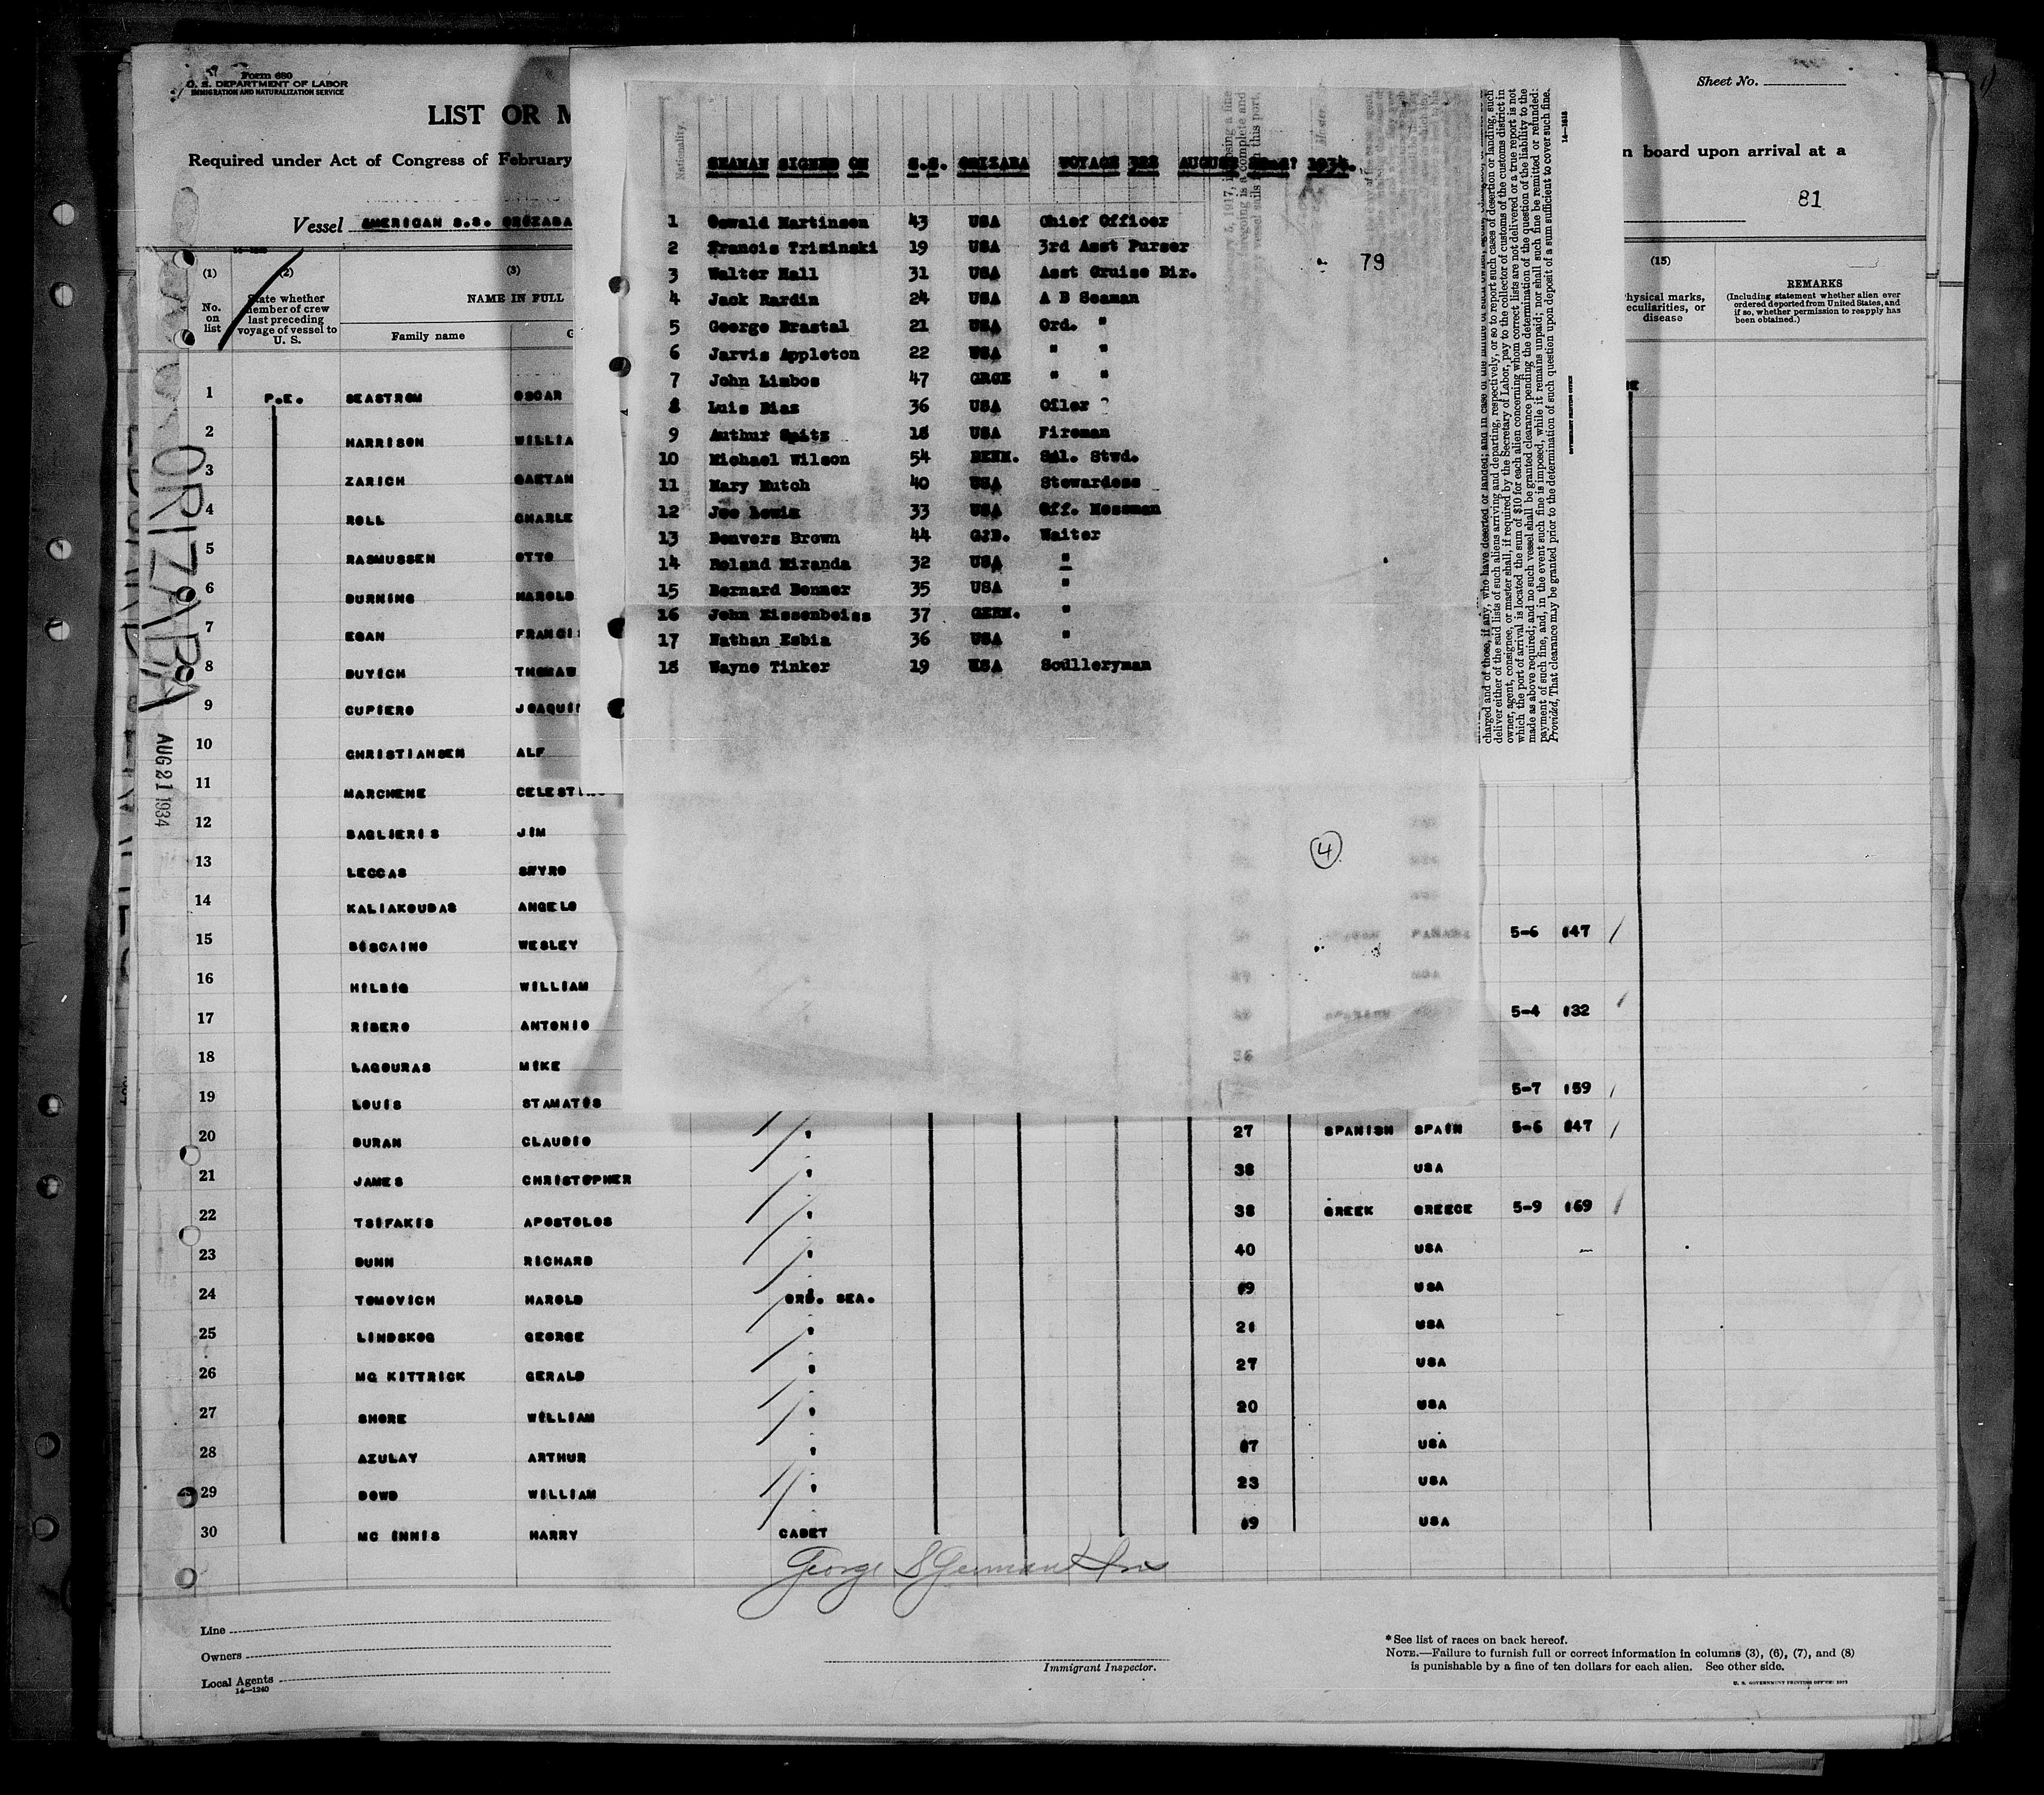 Form 680
U. S. DEPARTMENT OF LABOR
IMMIGRATION AND NATURALIZATION SERVICE
LIST OR M
Required under Act of Congress of February
Vessel AMERICAN S.S. ORIZABA
Sheet No.
n board upon arrival at a
81
(1) No. on list
(2) State whether member of crew last preceding voyage of vessel to U. S.
(3) NAME IN FULL
Family name G
(15)
hysical marks, eculiarities, or disease
REMARKS
(Including statement whether alien ever ordered deported from United States, and if so, whether permission to reapply has been obtained.)
ORIZABA
AUG 21 1934
Nationality.
SEAMAN SIGNED ON S.S. ORIZABA VOYAGE 322 AUGUST 1934.
1 Oswald Martinsen 43 USA Chief Officer
2 Francis Trizinski 19 USA 3rd Asst Purser
3 Walter Hall 31 USA Asst Cruise Dir.
79
4 Jack Rardin 24 USA A B Seaman
5 George Brastal 21 USA Ord. "
6 Jarvis Appleton 22 USA " "
7 John Limbos 47 GRGE " "
8 Luis Diaz 36 USA Oiler
9 Authur Spitz 18 USA Fireman
10 Michael Wilson 54 DENM. Sal. Stwd.
11 Mary Hutch 40 USA Stewardess
12 Joe Lewis 33 USA Off. Messman
13 Denvers Brown 44 Waiter
14 Roland Miranda 32 USA "
15 Bernard Benner 35 USA "
16 John Kissenbeiss 37 GERM. "
17 Nathan Esbia 36 USA "
18 Wayne Tinker 19 USA Sculleryman
4
charged and of those, if any, who have deserted or landed; and in case of the
deliver either of the said lists of such aliens arriving and departing, respectively, or so to report such cases of desertion or landing, such
owner, agent, consignee, or master shall, if required by the Secretary of Labor, pay to the collector of customs of the customs district in
which the port of arrival is located the sum of $10 for each alien concerning whom correct lists are not delivered or a true report is not
made as above required; and no such vessel shall be granted clearance pending the determination of the question of the liability to the
payment of such fine, and, in the event such fine is imposed, while it remains unpaid; nor shall such fine be remitted or refunded:
Provided, That clearance may be granted prior to the determination of such question upon deposit of a sum sufficient to cover such fine.
1 P.E. SEASTROM OSCAR
2 HARRISON WILLIA
3 ZARICH GAETAN
4 ROLL CHARLE
5 RASMUSSEN OTTO
6 BURNING HAROLD
7 EGAN FRANCI
8 BUYICH THOMAS
9 CUPIERO JOAQUI
10 CHRISTIANSEN ALF
11 MARCHENE CELEST
12 BAGLIERIS JIM
13 LECCAS SPYRO
14 KALIAKOUDAS ANGELO
15 BESCAINO WESLEY PANAMA 5-6 147
16 HILBIG WILLIAM
17 RIBERO ANTONIO 5-4 132
18 LAGOURAS MIKE 36
19 LOUIS STAMATES 5-7 159
20 DURAN CLAUDIO " 27 SPANISH SPAIN 5-6 147
21 JAMES CHRISTOPHER " 38 USA
22 TSIFAKIS APOSTOLOS " 38 GREEK GREECE 5-9 169
23 DUNN RICHARD " 40 USA
24 TOMOVICH HAROLD ORD. SEA. 19 USA
25 LINDSKOG GEORGE " 21 USA
26 MC KITTRICK GERALD " 27 USA
27 SHORE WILLIAM " 20 USA
28 AZULAY ARTHUR " 17 USA
29 DOWD WILLIAM " 23 USA
30 MC INNIS HARRY CADET 19 USA
Line
Owners
Local Agents
14—1240
Immigrant Inspector.
* See list of races on back hereof.
NOTE.—Failure to furnish full or correct information in columns (3), (6), (7), and (8)
is punishable by a fine of ten dollars for each alien. See other side.